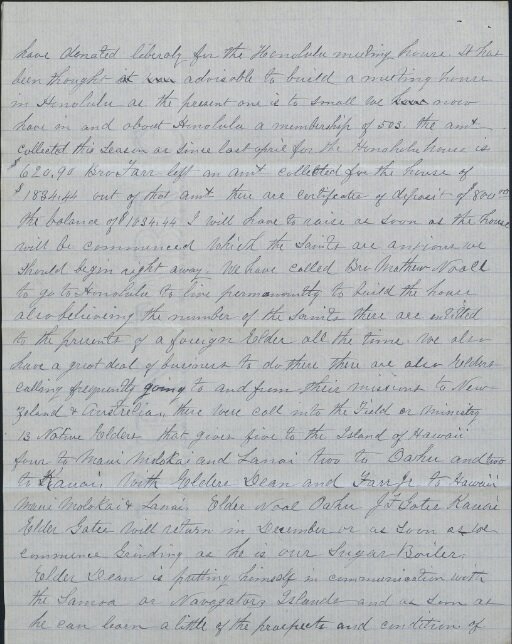 have donated liberaly for the Honolulu meeting house. It has
been thought advisable to build a meeting house
in Honolulu as the present one is to small we have now
have in and about Honolulu a membership of 503. the amt
collected this season or since last april for the Honolulu house is
$620.90 Bro Farr left an amt collected for the house of
$1834.44 out of that amt there are certificates of deposit of $800.00
the balance of $1034.44 I will have to raise as soon as the house
will be commenced which the Saints are anxious we
should begin right away. We have called Bro Mathew Noall
to go to Honolulu to live permanently to build the house
also believeing the number of the Saints there are entitled
to the presents of a foreign Elder all the time. We also
have a great deal of business to do there there are also Elders
calling frequently going to and from their missions to New
Zeland & Australia, there were call into the Field or ministry
13 Native Elders that gives five to the Island of Hawaii
four to Maui Molokai and Lanai two to Oahu and two
to Kauai. With Elders Dean and Farr Jr to Hawaii
Maui Molokai & Lanai. Elder Noal Oahu J F Gates Kauai
Elder Gates will return in December or as soon as we
commence Grinding as he is our Sugar Boiler.
Elder Dean is putting himself in communication with
the Samoa or Navagators Islands and as soon as
he can learn a little of the prospects and condition of